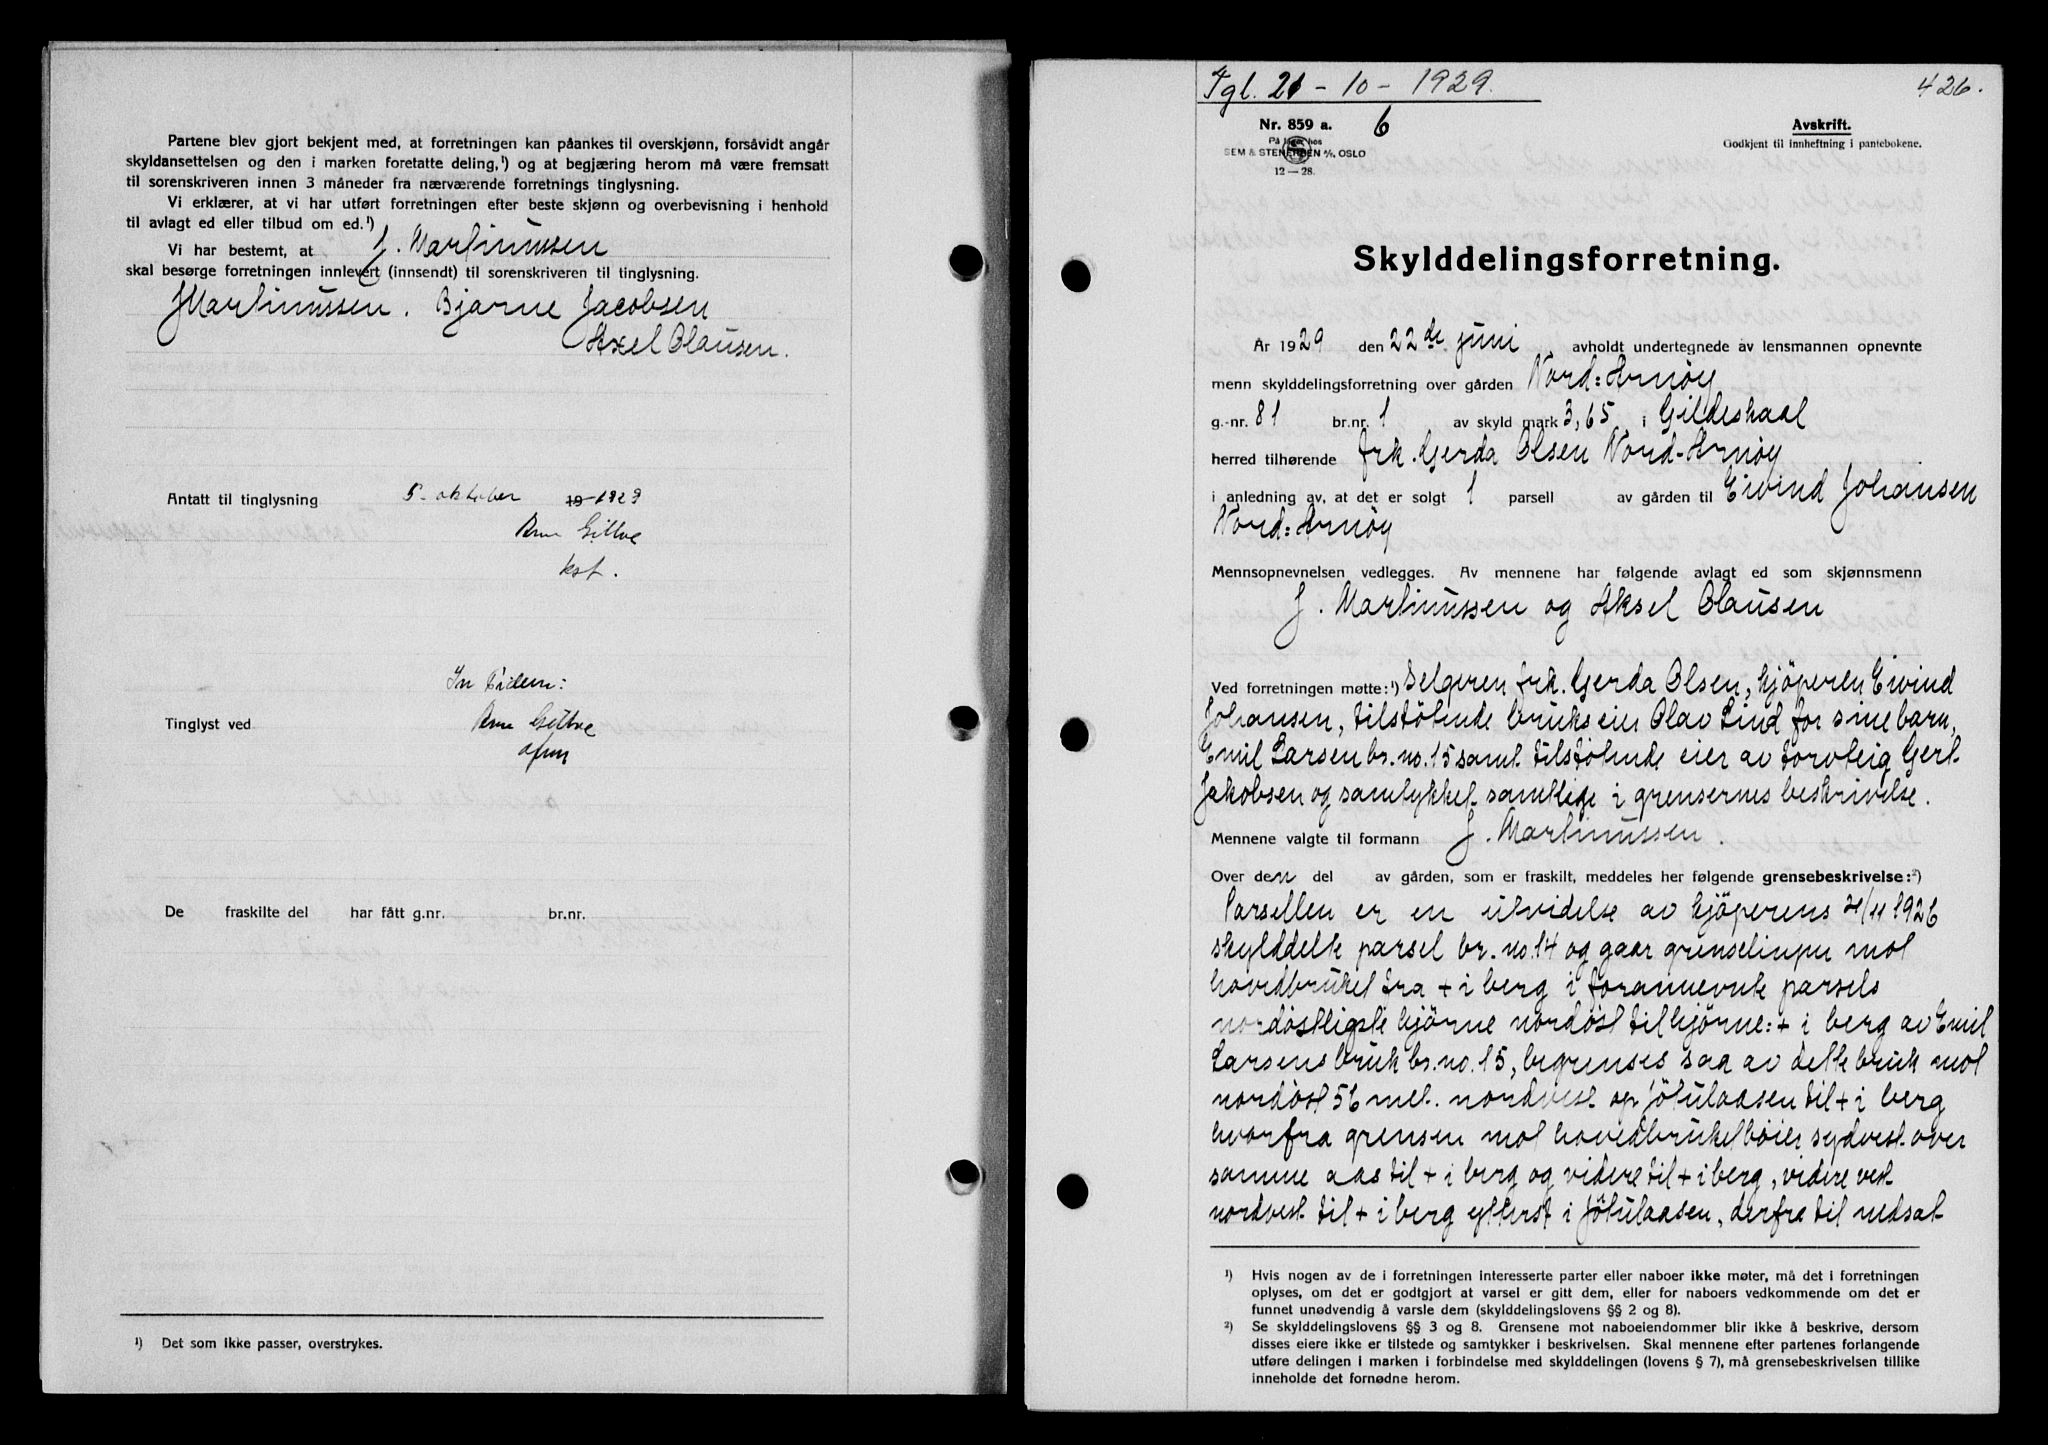 Partene blev gjort bekjent med, at forretningen kan påankes til overskjønn, forsåvidt angår
skyldansettelsen og den i marken foretatte deling,¹) og at begjæring herom må være fremsatt
til sorenskriveren innen 3 måneder fra nærværende forretnings tinglysning.
Vi erklærer, at vi har utført forretningen efter beste skjønn og overbevisning i henhold
til avlagt ed eller tilbud om ed.¹)
Vi har bestemt, at J. Martinussen
skal besørge forretningen innlevert (innsendt) til sorenskriveren til tinglysning.
J Martinussen. Bjarne Jacobsen
Axel Olausen.
Antatt til tinglysning 5. oktober 19 1929
Arne Gittve
kst.
In Fidem:
Tinglyst ved Arne Gittve
De fraskilte del har fått g.nr. br.nr.
¹) Det som ikke passer, overstrykes.
Tgl. 21 - 10 - 1929. 426.
Nr. 859 a. 6 Avskrift.
På lager hos Godkjent til innheftning i pantebokene.
SEM & STENERSEN A/S, OSLO
12—28.
Skylddelingsforretning.
År 1929 den 22de juni avholdt undertegnede av lensmannen opnevnte
menn skylddelingsforretning over gården Nord=Arnøy
g.-nr. 81 br.nr. 1 av skyld mark 3,65 i Gildeskaal
herred tilhørende frk. Gerda Olsen Nord-Arnøy
i anledning av, at det er solgt 1 parsell av gården til Eivind Johansen
Nord=Arnøy
Mennsopnevnelsen vedlegges. Av mennene har følgende avlagt ed som skjønnsmenn
J. Martinussen og Aksel Olausen
Ved forretningen møtte:¹) Selgeren frk. Gerda Olsen, kjöperen Eivind
Johansen, tilstötende bruks eier Olav Lind for sine barn,
Emil Larsen br. no. 15 samt tilstötende eier av torvteig Gert
Jakobsen og samtykket samtlige i grensernes beskrivelse.
Mennene valgte til formann J. Martinussen.
Over den del av gården, som er fraskilt, meddeles her følgende grensebeskrivelse:²)
Parsellen er en utvidelse av kjöperens 4/11 1926
skylddelte parsel br. no. 14 og gaar grenselinjen mot
hovedbruket fra + i berg i forannevnte parsels
nordöstligste hjörne nordöst til hjörne: + i berg av Emil
Larsens bruk br. no. 15, begrenses saa av dette bruk mot
nordöst 56 met. nordvest op Jötulaasen til + i berg
hvorfra grensen mot hovedbruket böier sydvest over
samme aas til + i berg og videre til + i berg, videre vest
nordvest til + i berg ytterst i Jötulaasen, derfra til nedsat
¹) Hvis nogen av de i forretningen interesserte parter eller naboer ikke møter, må det i forretningen
oplyses, om det er godtgjort at varsel er gitt dem, eller for naboers vedkommende om det er
funnet unødvendig å varsle dem (skylddelingslovens §§ 2 og 8).
²) Se skylddelingslovens §§ 3 og 8. Grensene mot naboeiendommer blir ikke å beskrive, dersom
disses eiere ikke er tilstede og samtykker i beskrivelsen. Skal mennene efter partenes forlangende
utføre delingen i marken i forbindelse med skylddelingen (lovens § 7), må grensebeskrivelsen tillike
inneholde det fornødne herom.